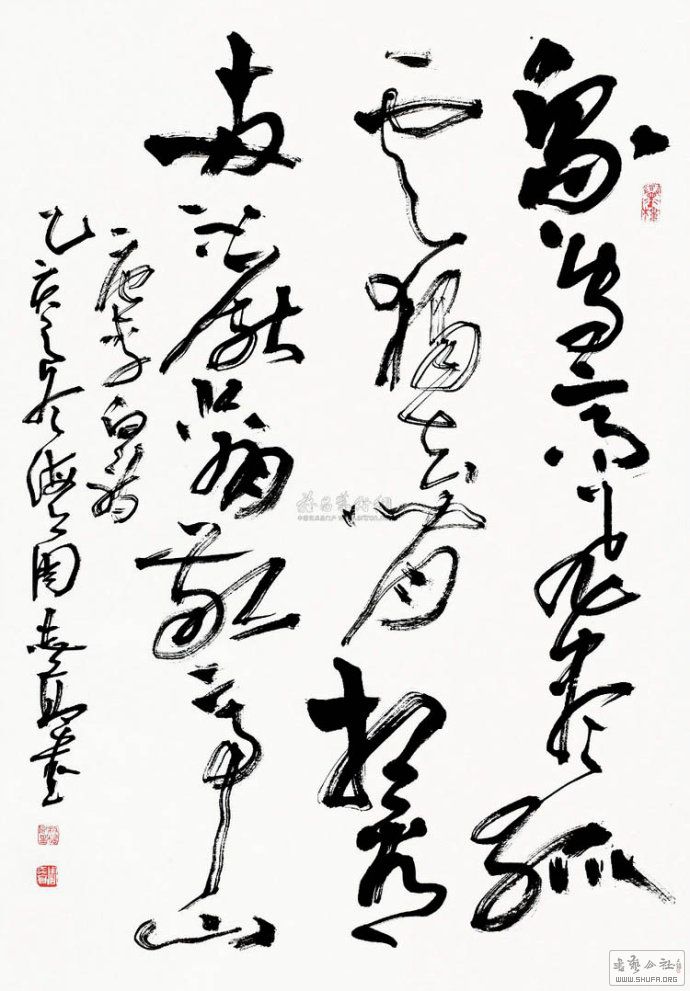 眾鳥高飛盡孤
雲獨去閒相看
兩不厭只有敬亭山
唐李白詩
乙亥之冬海上周志高書
書藝公社
WWW.SHUFA.ORG